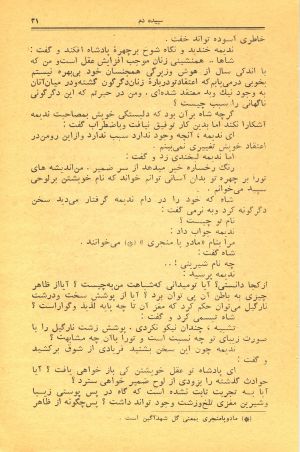 سپیده دم ۳۱
خاطری آسوده تواند خفت .
ندیمه خندید و نگاه شوخ برچهرهٔ پادشاه افکند و گفت :
شاها .. همنشینی زنان موجب افزایش عقل است و من که
با اندکی سال از هوش وزیرکی همجنسان خود بی‌بهره نیستم
بخوبی درمی‌یابم که اعتقاد تو دربارهٔ زنان دگرگون گشته و در میان آنان
بوجود نیک و بد معتقد شده‌ای . ومن در حیرتم که این دگرگونی
ناگهانی را سبب چیست ؟
گرچه شاه بر آن بود که دلبستگی خویش بمصاحبت ندیمه
آشکارا نکند اما بدین کار توفیق نیافت و باضطراب گفت :
ای ندیمه ، آنچه وجود ندارد سبب ندارد و از این رو من در
اعتقاد خویش تغییری نمی‌بینم .
اما ندیمه لبخندی زد و گفت :
رنگ رخساره خبر میدهد از سر ضمیر . من اندیشه های
ترا بر چهره تو بدان آسانی توانم خواند که نام خویشتن بر لوحی
سپید می‌خوانم .
شاه که خود را در دام ندیمه گرفتار می‌دید سخن
دگرگونه کرد و به نرمی گفت :
نام تو چیست ؟
ندیمه جواب داد :
مرا بنام «مادو یا منجری » (*) می‌خوانند .
شاه گفت :
چه نام شیرینی ! ..
ندیمه پرسید :
از کجا دانستی؟ آیا تو میدانی که شباهت من به چیست ؟ آیا از ظاهر
چیزی به باطن آن پی توان برد ؟ آیا از پوشش سخت و درشت
نارگیل می‌توان حکم کرد که مغز آن تا چه پایه لذیذ و گوار است ؟
شاه تبسمی کرد و گفت :
تشبیه ، چندان نیکو نکردی . پوشش زشت نارگیل را با
صورت زیبای تو چه نسبت است و ترا با آن چه مشابهت ؟
ندیمه چون این سخن بشنید فریادی از شوق برکشید
و گفت :
ای پادشاه تو عقل خویشتن کی باز خواهی یافت ؟ آیا
حوادث گذشته را بزودی از لوح ضمیر خواهی سترد ؟
آیا بـه تجربت ثابت نشده است که گاه در پس پوستی زیبـا
و شیرین مغزی تلخ و زشت وجود تواند داشت ؟ پس چگونه از ظاهر
(*) مادویامنجری بمعنی گل شهدآگین است